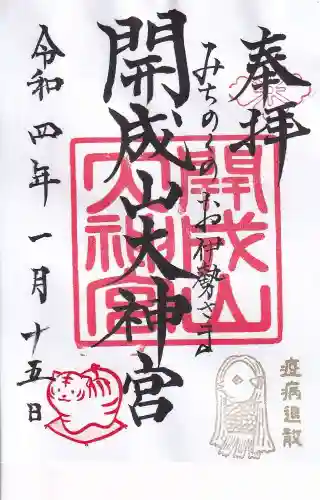 奉拝
みちのくのお伊勢さま
開成山大神宮
令和四年一月十五日
開成山
大神宮
疫病退散